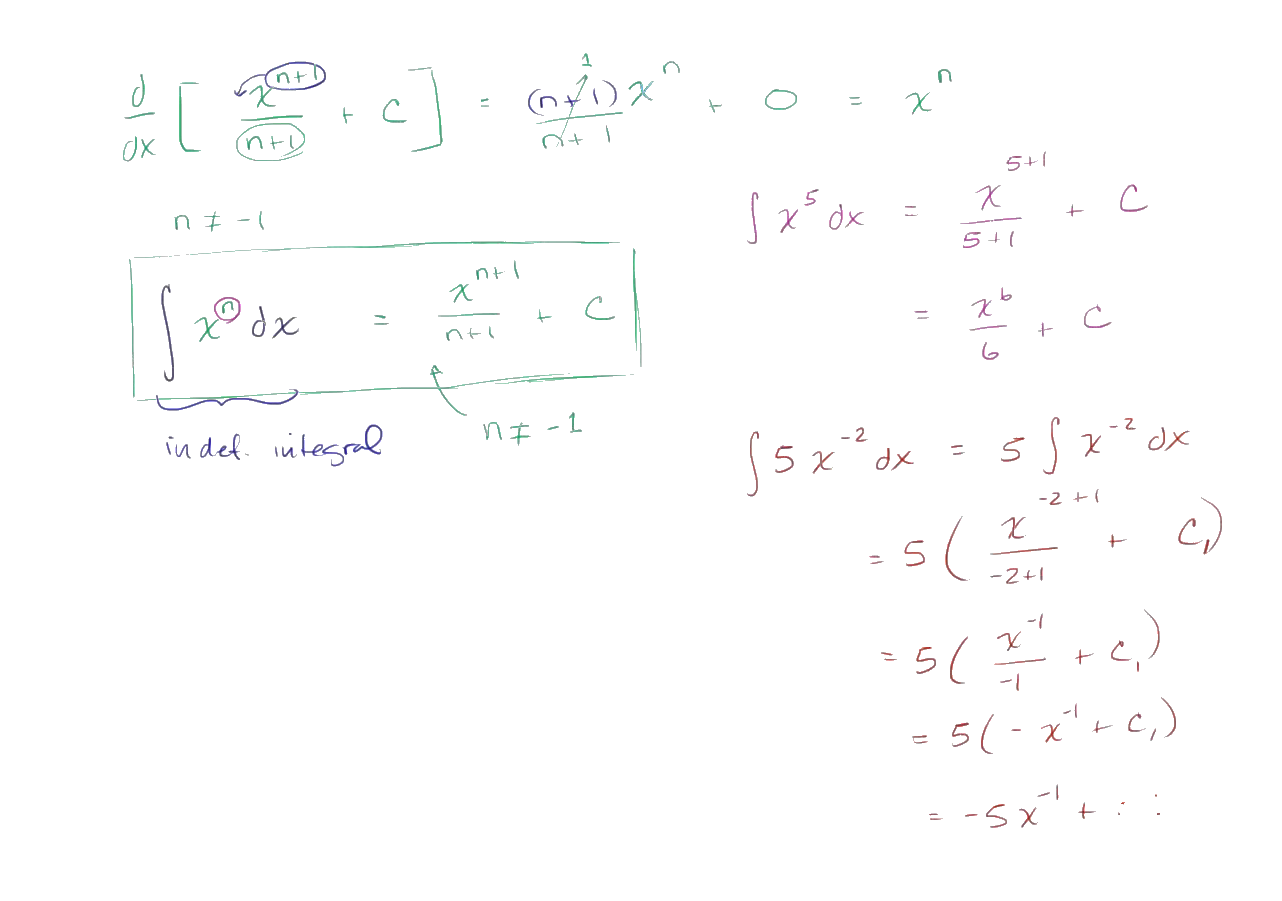 d/dx [ x^(n+1)/(n+1) + C ] = (n+1)x^n/(n+1) 1 + 0 = x^n
n ≠ -1
∫ x^n dx = x^(n+1)/(n+1) + C
n ≠ -1
indef. integral
∫ x^5 dx = x^(5+1)/(5+1) + C
= x^6/6 + C
∫ 5 x^-2 dx = 5 ∫ x^-2 dx
= 5 ( x^(-2+1)/(-2+1) + C₁)
= 5 ( x^-1/-1 + C₁)
= 5 ( - x^-1 + C₁)
= -5x^-1 +